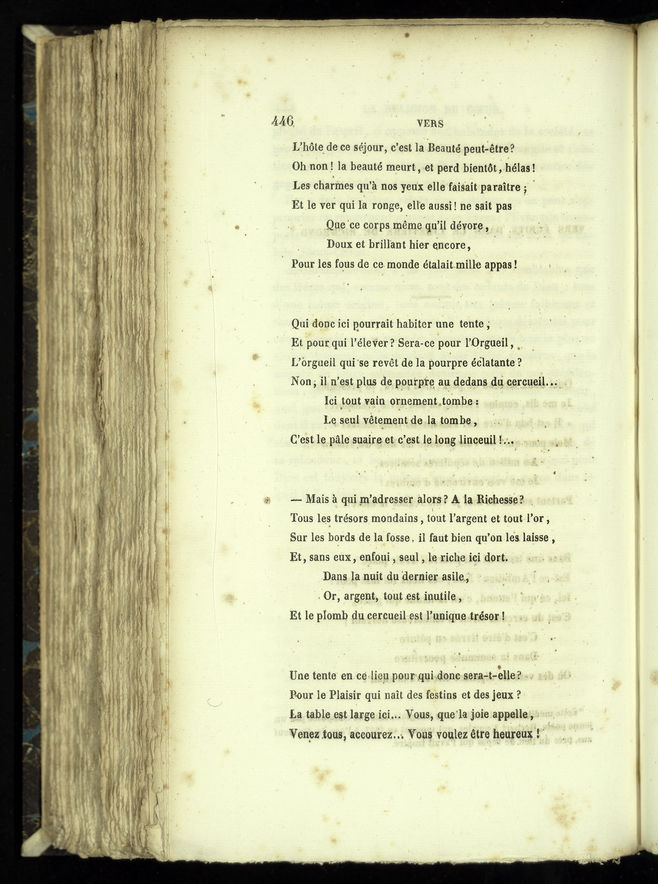 446 VERS
L'hôte de ce séjour, c'est la Beauté peut-être?
Oh non! la beauté meurt, et perd bientôt, hélas!
Les charmes qu'à nos yeux elle faisait paraître;
Et le ver qui la ronge, elle aussi! ne sait pas
Que ce corps même qu'il dévore,
Doux et brillant hier encore,
Pour les fous de ce monde étalait mille appas!
Qui donc ici pourrait habiter une tente,
Et pour qui l'élever? Sera-ce pour l'Orgueil,
L'orgueil qui se revêt de la pourpre éclatante?
Non; il n'est plus de pourpre au dedans du cercueil...
Ici tout vain ornement tombe:
Le seul vêtement de la tombe,
C'est le pâle suaire et c'est le long linceuil!...
— Mais à qui m'adresser alors? A la Richesse?
Tous les trésors mondains, tout l'argent et tout l'or,
Sur les bords de la fosse, il faut bien qu'on les laisse,
Et, sans eux, enfoui, seul, le riche ici dort.
Dans la nuit du dernier asile,
Or, argent, tout est inutile,
Et le plomb du cercueil est l'unique trésor!
Une tente en ce lieu pour qui donc sera-t-elle?
Pour le Plaisir qui naît des festins et des jeux?
La table est large ici... Vous, que la joie appelle,
Venez tous, accourez... Vous voulez être heureux!